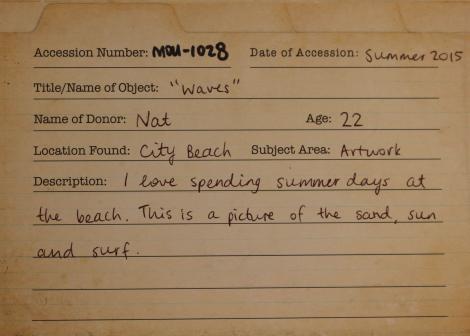 Accession Number: MOU-1028 Date of Accession: Summer 2015
Title/Name of Object: "Waves"
Name of Donor: Nat Age: 22
Location Found: City Beach Subject Area: Artwork
Description: I love spending summer days at
the beach. This is a picture of the sand, sun
and surf.